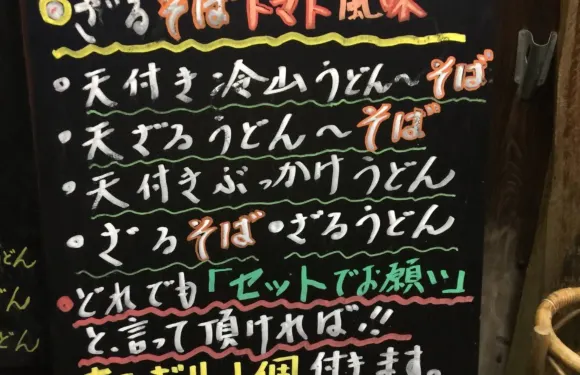 ざるそばトマト風味
・天付き冷山うどん〜そば
・天ざるうどん〜そば
・天付きぶっかけうどん
・ざるそば・ざるうどん
・どれでも「セットでお願い」
と言って頂ければ!!
1個付きます。
どん
どん
どん